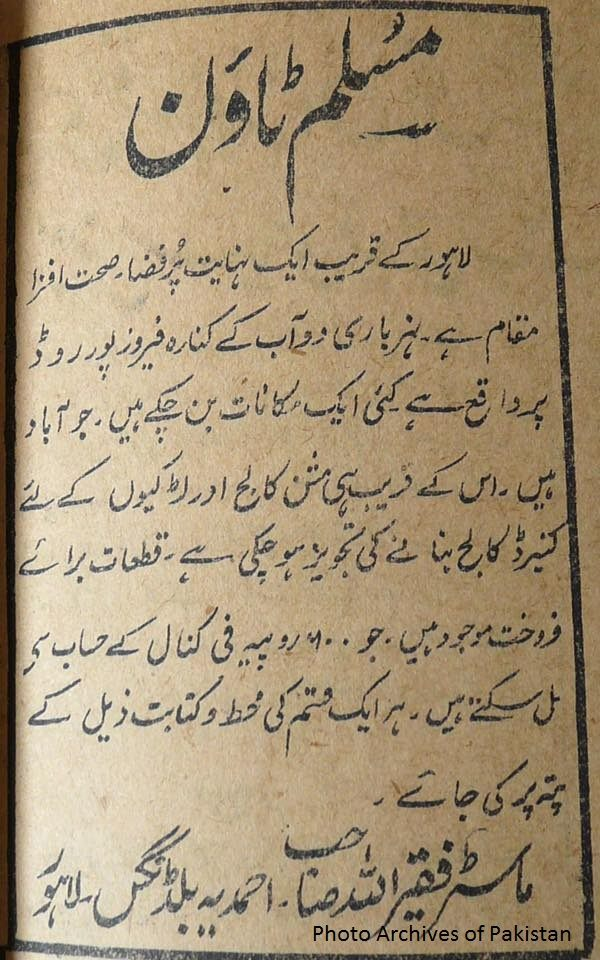 مسلم ٹاؤن
لاہور کے قریب ایک نہایت پُر فضا۔ صحت افزا
مقام ہے۔ نہر باری دوآب کے کنارہ فیروز پور روڈ
پر واقع ہے کئی ایک مکانات بن چکے ہیں۔ جو آباد
ہیں۔ اس کے قریب ہی مشن کالج اور لڑکیوں کے لئے
کنیرڈ کالج بنانے کی تجویز ہو چکی ہے۔ قطعات برائے
فروخت موجود ہیں۔ جو ۶۰۰ روپیہ فی کنال کے حساب سے
مل سکتے ہیں۔ ہر ایک قسم کی خط و کتابت ذیل کے
پتہ پر کی جائے۔
ماسٹر فقیر اللہ صاحب۔ احمدیہ بلڈنگس۔ لاہور
Photo Archives of Pakistan